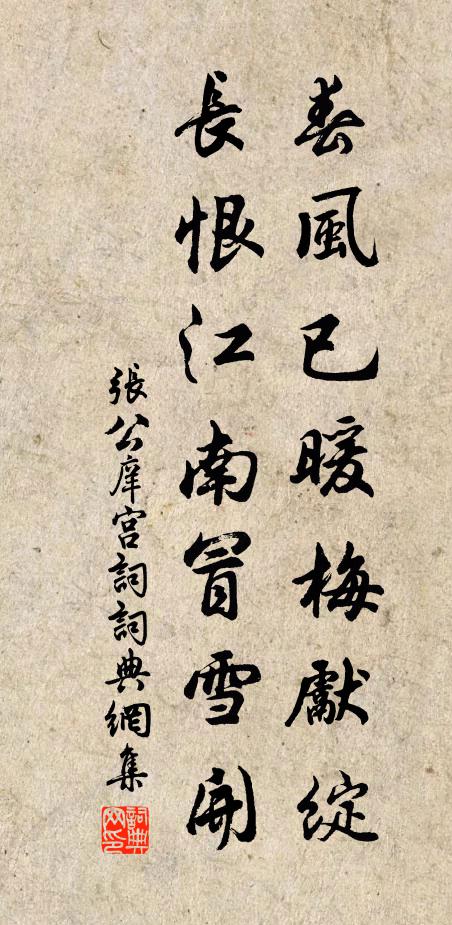 春風已暖梅獻綻
長恨江南冒雪開
張公庠宮詞詞典網集
詞典網印